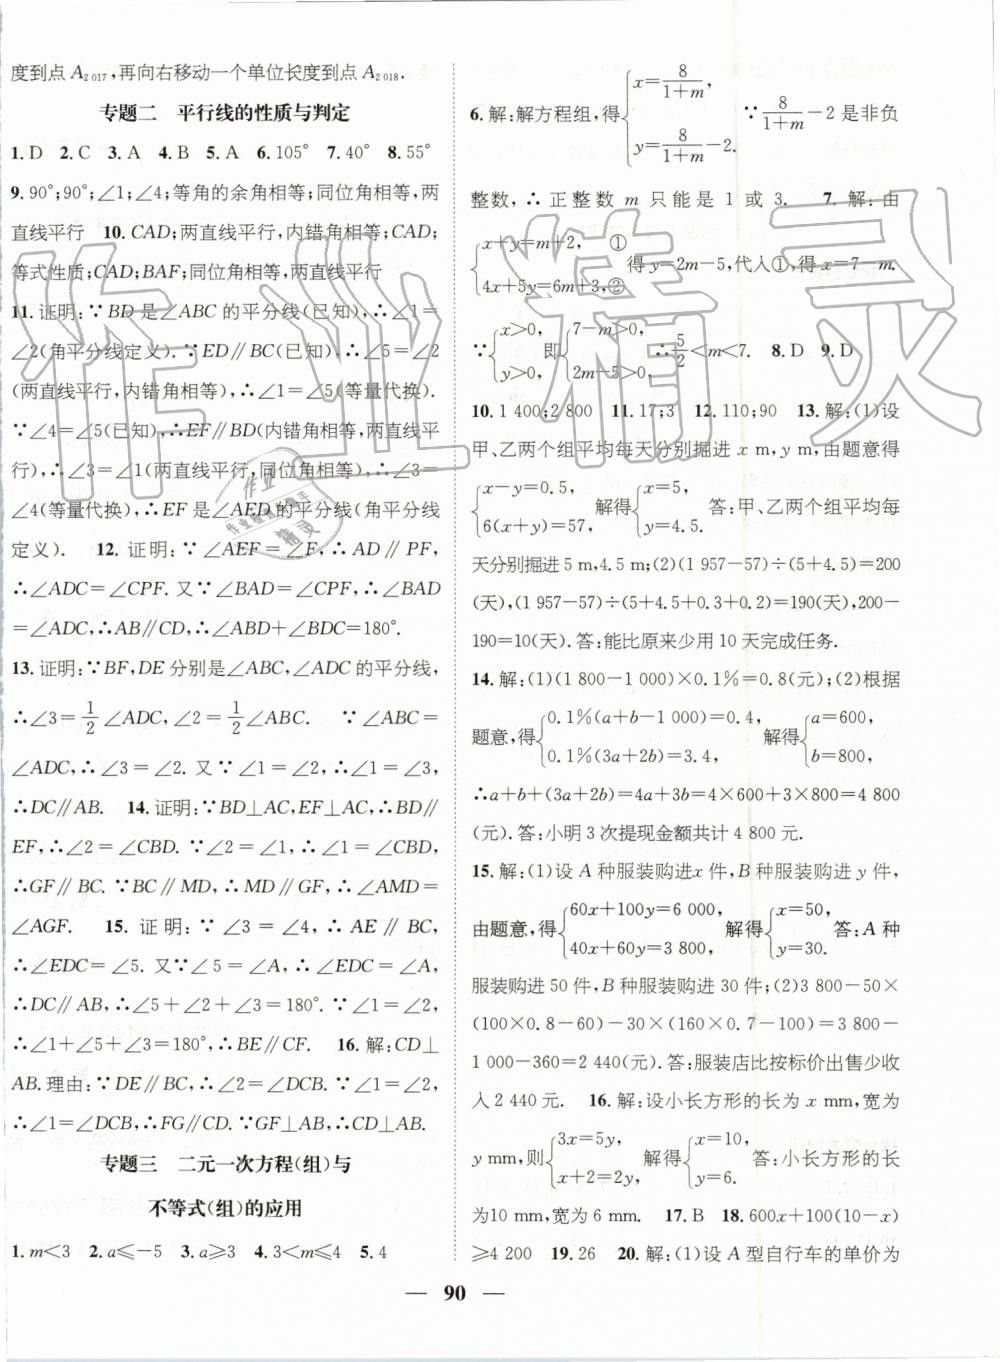 度到点 A₂ ₀₁₇,再向右移动一个单位长度到点 A₂ ₀₁₈.
专题二　平行线的性质与判定
1. D　2. C　3. A　4. B　5. A　6. 105°　7. 40°　8. 55°
9. 90°;90°;∠1;∠4;等角的余角相等;同位角相等,两
直线平行　10. CAD;两直线平行,内错角相等;CAD;
等式性质;CAD;BAF;同位角相等,两直线平行
11. 证明:∵BD 是∠ABC 的平分线(已知),∴∠1=
∠2(角平分线定义). ∵ED∥BC(已知),∴∠5=∠2
(两直线平行,内错角相等),∴∠1=∠5(等量代换).
∵∠4=∠5(已知),∴EF∥BD(内错角相等,两直线平
行),∴∠3=∠1(两直线平行,同位角相等),∴∠3=
∠4(等量代换),∴EF 是∠AED 的平分线(角平分线
定义).　12. 证明:∵∠AEF=∠F,∴AD∥PF,
∴∠ADC=∠CPF. 又∵∠BAD=∠CPF,∴∠BAD
=∠ADC,∴AB∥CD,∴∠ABD+∠BDC=180°.
13. 证明:∵BF,DE 分别是∠ABC,∠ADC 的平分线,
∴∠3=1/2∠ADC,∠2=1/2∠ABC.　∵∠ABC=
∠ADC,∴∠3=∠2. 又∵∠1=∠2,∴∠1=∠3,
∴DC∥AB.　14. 证明:∵BD⊥AC,EF⊥AC,∴BD∥
EF,∴∠2=∠CBD. ∵∠2=∠1,∴∠1=∠CBD,
∴GF∥BC. ∵BC∥MD,∴MD∥GF,∴∠AMD=
∠AGF.　15. 证明:∵∠3=∠4,∴AE∥BC,
∴∠EDC=∠5. 又∵∠5=∠A,∴∠EDC=∠A,
∴DC∥AB,∴∠5+∠2+∠3=180°. ∵∠1=∠2,
∴∠1+∠5+∠3=180°,∴BE∥CF.　16. 解:CD⊥
AB. 理由:∵DE∥BC,∴∠2=∠DCB. 又∵∠1=∠2,
∴∠1=∠DCB,∴FG∥CD. ∵GF⊥AB,∴CD⊥AB.
专题三　二元一次方程(组)与
不等式(组)的应用
1. m<3　2. a⩽-5　3. a⩾3　4. 3<m⩽4　5. 4
6. 解:解方程组,得{x=8/(1+m), y=8/(1+m)-2. ∵8/(1+m)-2 是非负
整数,∴正整数 m 只能是 1 或 3.　7. 解:由
{x+y=m+2,　① 4x+5y=6m+3,② 得 y=2m-5,代入①,得 x=7-m.
∵{x>0, y>0, 即{7-m>0, 2m-5>0, ∴5/2<m<7.　8. D　9. D
10. 1 400;2 800　11. 17;3　12. 110;90　13. 解:(1)设
甲、乙两个组平均每天分别掘进 x m,y m,由题意得
{x-y=0.5, 6(x+y)=57, 解得{x=5, y=4.5. 答:甲、乙两个组平均每
天分别掘进 5 m,4.5 m;(2)(1 957-57)÷(5+4.5)=200
(天),(1 957-57)÷(5+4.5+0.3+0.2)=190(天),200-
190=10(天). 答:能比原来少用 10 天完成任务.
14. 解:(1)(1 800-1 000)×0.1%=0.8(元);(2)根据
题意,得{0.1%(a+b-1 000)=0.4, 0.1%(3a+2b)=3.4, 解得{a=600, b=800,
∴a+b+(3a+2b)=4a+3b=4×600+3×800=4 800
(元). 答:小明 3 次提现金额共计 4 800 元.
15. 解:(1)设 A 种服装购进x 件,B 种服装购进 y 件,
由题意,得{60x+100y=6 000, 40x+60y=3 800, 解得{x=50, y=30. 答:A 种
服装购进 50 件,B 种服装购进 30 件;(2)3 800-50×
(100×0.8-60)-30×(160×0.7-100)=3 800-
1 000-360=2 440(元). 答:服装店比按标价出售少收
入 2 440 元.　16. 解:设小长方形的长为 x mm,宽为
y mm,则{3x=5y, x+2=2y, 解得{x=10, y=6. 答:小长方形的长
为10 mm,宽为 6 mm.　17. B　18. 600x+100(10-x)
⩾4 200　19. 26　20. 解:(1)设 A 型自行车的单价为
— 90 —
作业精灵